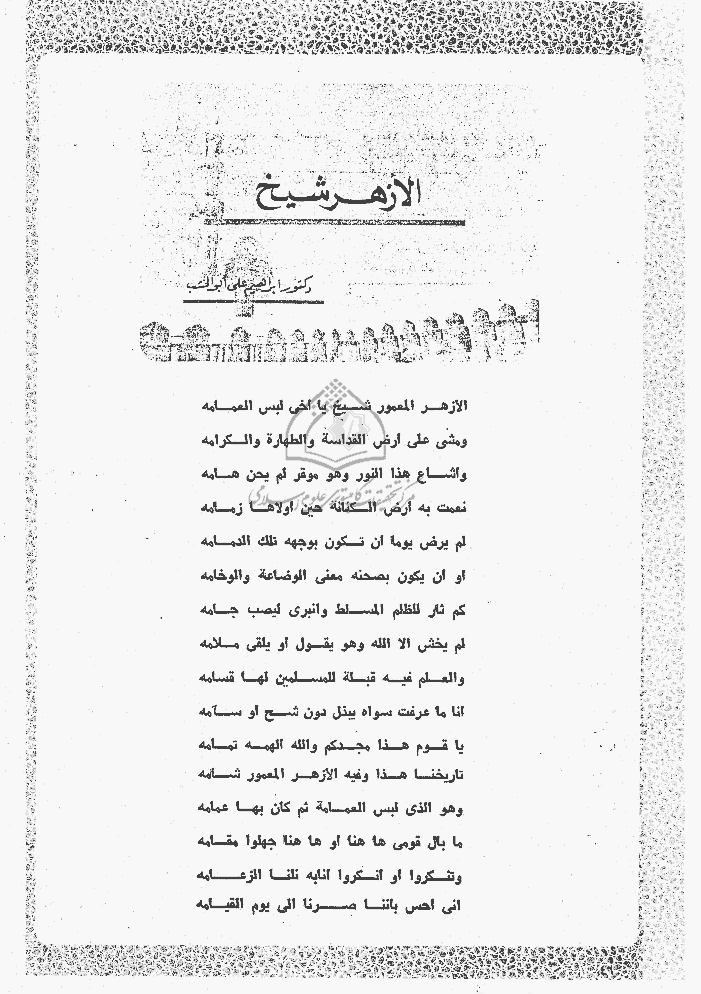 الأزهر شيخ
دكتور ابراهيم على أبو الخشب
الازهـر المعمور شـيخ يا أخى لبس العمـامه
ومشى على ارض القداسة والطهارة والـكرامه
وأشـاع هذا النور وهو موقر لم يحن هـامه
مركز تحقيقات كامپيوترى علوم اسلامى
نعمت به ارض الـكنانة حين أولاهـا زمـامه
لم يرض يوما ان تـكون بوجهه تلك الدمـامه
او ان يكون بصحنه معنى الوضاعة والوخامه
كم ثار للظلم المسـلط وانبرى ليصب جـامه
لم يخش الا الله وهو يقـول او يلقى مـلامه
والعـلم فيـه قبـلة للمسـلمين لهـا قسامه
انا ما عرفت سواه يبذل دون شـح او سـآمه
يا قـوم هـذا مجـدكم والله الهمـه تمـامه
تاريخنـا هـذا وفيه الازهـر المعمور شـامه
وهو الذى لبس العمـامة ثم كان بهـا عمامه
ما بال قومى ها هنا او ها هنا جهلوا مقـامه
وتنـكروا او انـكروا أنابه نلنـا الزعـامه
انى احس باننـا صـرنا الى يوم القيـامه